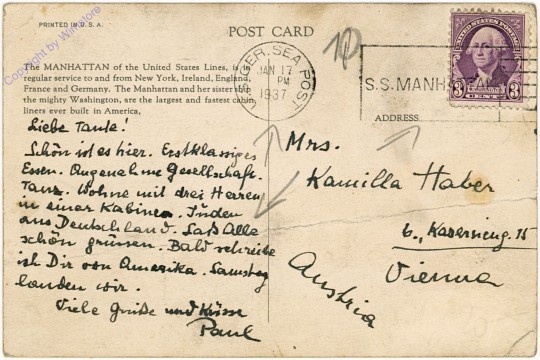 PRINTED IN U. S. A.
POST CARD
The MANHATTAN of the United States Lines, is in
regular service to and from New York, Ireland, England,
France and Germany. The Manhattan and her sister ship
the mighty Washington, are the largest and fastest cabin
liners ever built in America.
Liebe Tante!
Schön ist es hier. Erstklassiges
Essen. Angenehme Gesellschaft.
Tanz. Wohne mit drei Herren
in einer Kabine. Juden
aus Deutschland. Laß Alle
schön grüssen. Bald schreibe
ich Dir von Amerika. Samstag
landen wir.
Viele Grüße und Küsse
Paul
SEA POST
JAN 17
PM
1937
S.S. MANHATTAN
UNITED STATES POSTAGE
3 CENTS 3
ADDRESS
Mrs.
Kamilla Haber
6., Kaserneng. 15
Vienna
Austria